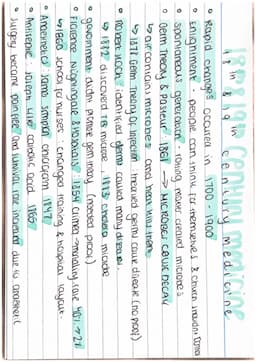 18th & 19th Century medicine
18th & 19th century medicine
• Rapid changes occured in 1700 - 1900
• Enlightenment - people can think for themselves & church
• spontaneous generation - rotting matter created microbes
• Germ Theory Pasteur 1861 → MICROBES CAUSE DECAY
↳ air contain microbes and heat kills them
↳ 1878 Germ Theory Of Infection theorised germs cause disease (no proof)
• Robert Koch identified germs caused many diseases
↳ 1882 discovered TB microbe, 1883 cholera microbe
• government didnt promote germ theory (needed proof)
• Florence Nightingale & Hospitals 1854 Crimea → mortality rate 40% → 2%
↳ 1860 school for nurses : changed training & hospital layout.
• Anaesthetics James Simpson chloroform 1847
• Antiseptic Joseph Lister carbolic acid 1865
• Surgery became painfree and survival rate increased due to anaesthetic